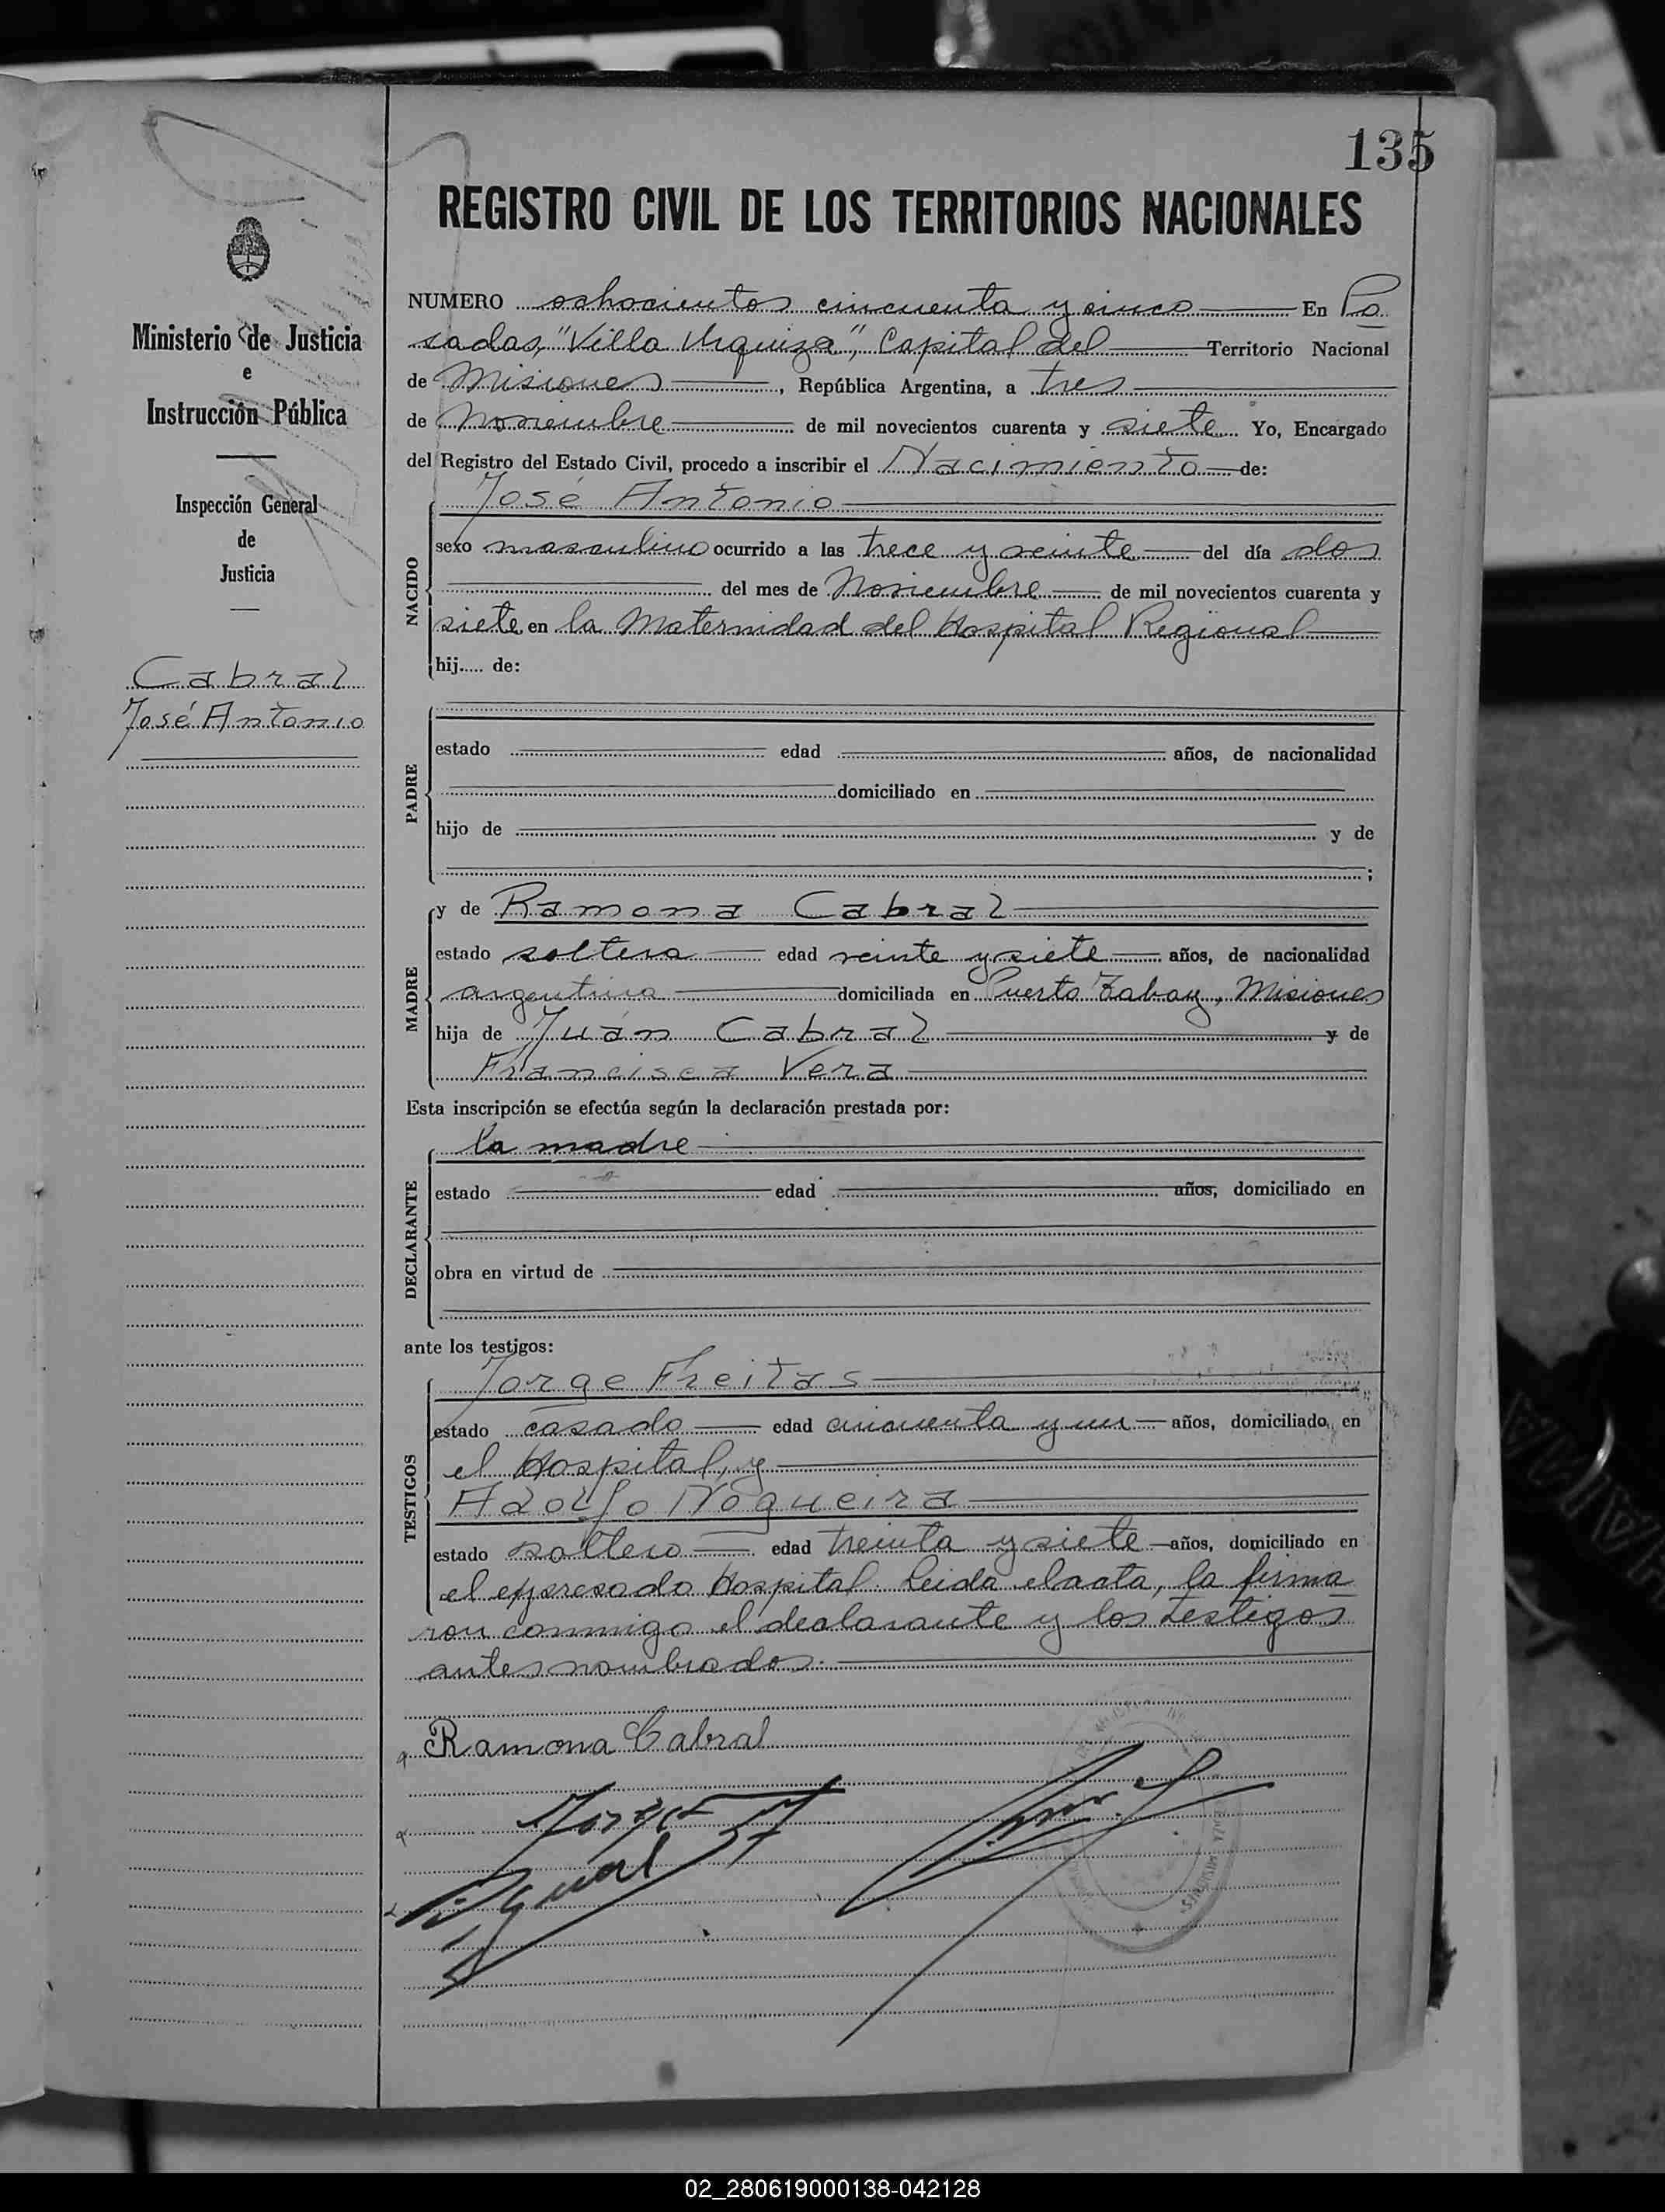 135
REGISTRO CIVIL DE LOS TERRITORIOS NACIONALES
Ministerio de Justicia
e
Instrucción Pública
Inspección General
de
Justicia
Cabral
José Antonio
NUMERO ochocientos cincuenta y cinco En Po
sadas, "Villa Urquiza", Capital del Territorio Nacional
de Misiones, República Argentina, a tres
de Noviembre de mil novecientos cuarenta y siete Yo, Encargado
del Registro del Estado Civil, procedo a inscribir el Nacimiento de:
NACIDO
José Antonio
sexo masculino ocurrido a las trece y veinte del día dos
del mes de Noviembre de mil novecientos cuarenta y
siete en la Maternidad del Hospital Regional
hij..... de:
PADRE
estado edad años, de nacionalidad
domiciliado en
hijo de y de
;
MADRE
y de Ramona Cabral
estado soltera edad veinte y siete años, de nacionalidad
argentina domiciliada en Puerto Tabay, Misiones
hija de Juán Cabral y de
Francisca Vera
Esta inscripción se efectúa según la declaración prestada por:
DECLARANTE
la madre
estado edad años, domiciliado en
obra en virtud de
ante los testigos:
TESTIGOS
Jorge Freitas
estado casado edad cincuenta y un años, domiciliado en
el Hospital, y
Adolfo Nogueira
estado soltero edad treinta y siete años, domiciliado en
el expresado Hospital. Leida el acta, la firma
ron conmigo el declarante y los testigos
antes nombrados.
Ramona Cabral
02_280619000138-042128